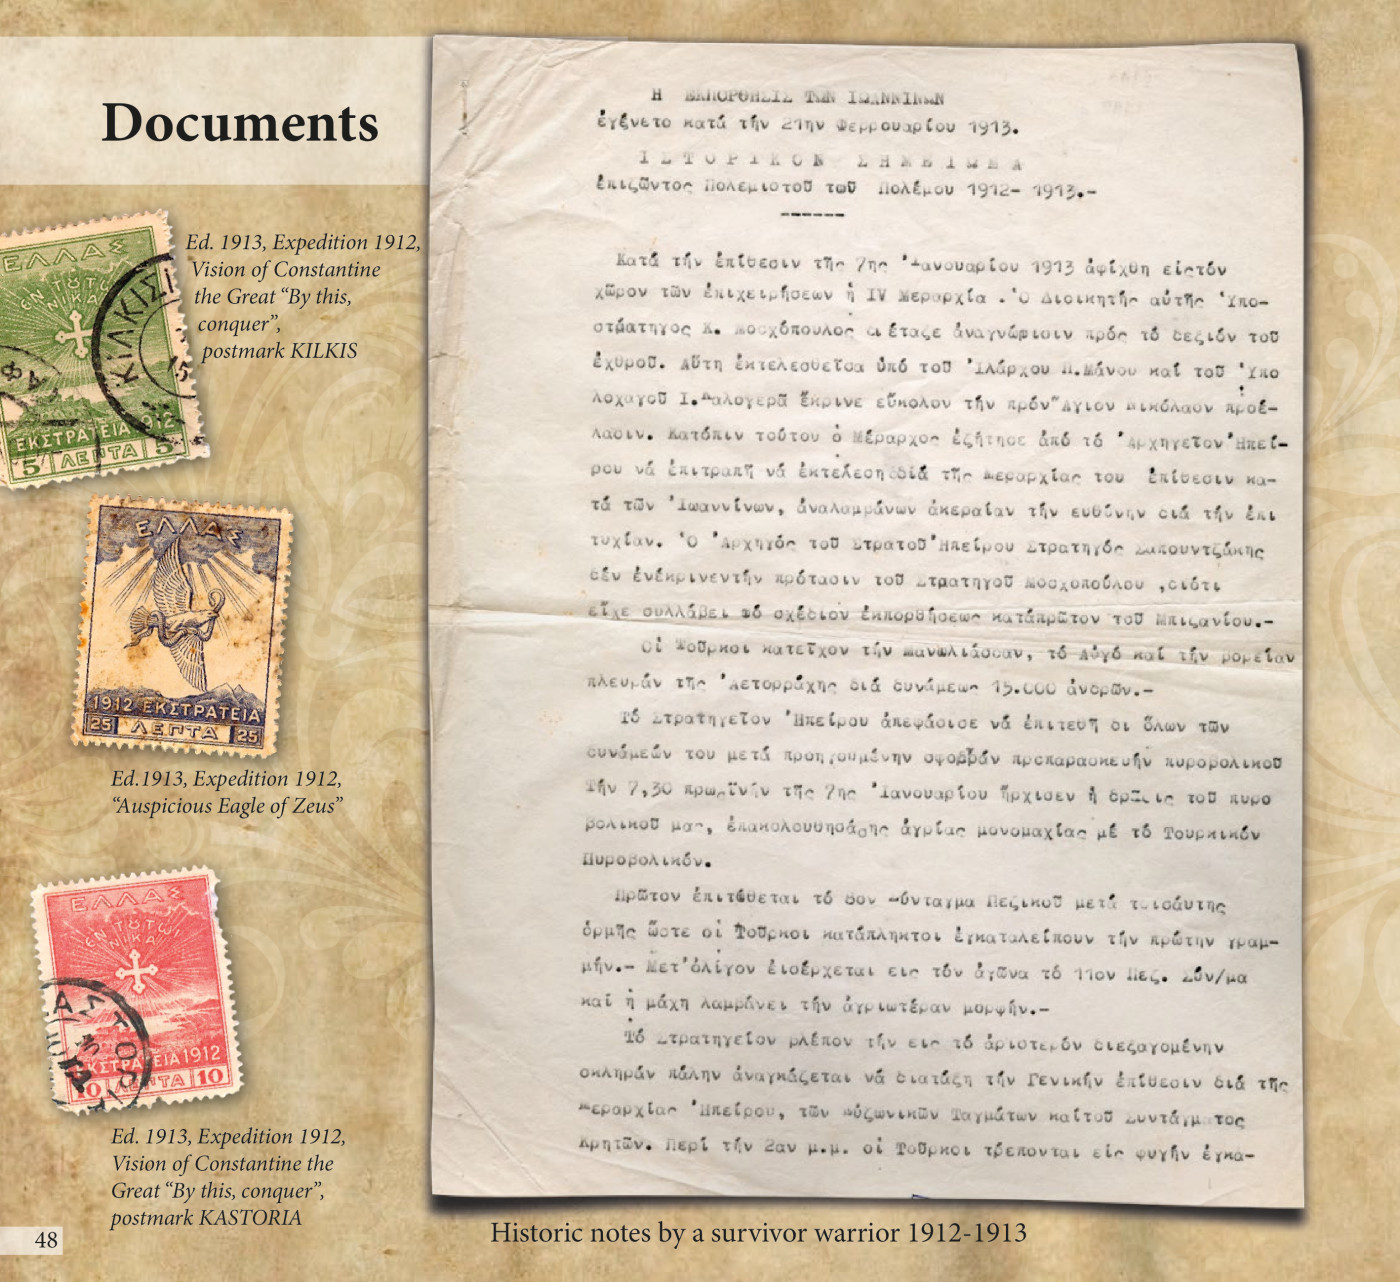 Documents
ΕΛΛΑΣ
ΕΝ ΤΟΥΤΩι
ΝΙΚΑ
ΚΙΛΚΙΣΙ
ΕΚΣΤΡΑΤΕΙΑ 1912
5 ΛΕΠΤΑ 5
Ed. 1913, Expedition 1912,
Vision of Constantine
the Great “By this,
conquer”,
postmark KILKIS
ΕΛΛΑΣ
1912 ΕΚΣΤΡΑΤΕΙΑ
25 ΛΕΠΤΑ 25
Ed.1913, Expedition 1912,
“Auspicious Eagle of Zeus”
ΕΛΛΑΣ
ΕΝ ΤΟΥΤΩι
ΝΙΚΑ
ΕΚΣΤΡΑΤΕΙΑ 1912
10 ΛΕΠΤΑ 10
Ed. 1913, Expedition 1912,
Vision of Constantine the
Great “By this, conquer”,
postmark KASTORIA
48
Η ΕΚΠΟΡΘΗΣΙΣ ΤΩΝ ΙΩΑΝΝΙΝΩΝ
ἐγένετο κατά τήν 21ην Φερρουαρίου 1913.
ΙΣΤΟΡΙΚΟΝ ΣΗΜΕΙΩΜΑ
ἐπιζῶντος Πολεμιστοῦ τοῦ Πολέμου 1912- 1913.-
Κατά τήν ἐπίθεσιν τῆς 7ης Ἰανουαρίου 1913 ἀφίχθη είςτόν
χῶρον τῶν ἐπιχειρήσεων ἡ IV Μεραρχία .Ὁ Διοικητής αὐτῆς Ὑπο-
στράτηγος Κ. Μοσχόπουλος διέταξε ἀναγνώρισιν πρός τό δεξιόν τοῦ
ἐχθροῦ. Αὕτη ἐκτελεσθεῖσα ὑπό τοῦ Ἰλάρχου Π.Μάνου καί τοῦ Ὑπο
λοχαγοῦ Ι.Καλογερᾶ ἔκρινε εὔκολον τήν πρόν Ἅγιον Νικόλαον προέ-
λασιν. Κατόπιν τούτου ὁ Μέραρχος ἐζήτησε ἀπό τό Ἀρχηγεῖον Ἠπεί-
ρου νά ἐπιτραπῆ νά ἐκτελεση διά τῆς Μεραρχίας του ἐπίθεσιν κα-
τά τῶν Ἰωαννίνων, ἀναλαμβάνων ἀκεραίαν τήν ευθύνην διά τήν ἐπι
τυχίαν. Ὁ Ἀρχηγός τοῦ Στρατοῦ Ἠπείρου Στρατηγός Σαπουντζάκης
δέν ἐνέκρινεντήν πρότασιν τοῦ Στρατηγοῦ Μοσχοπούλου ,διότι
εἶχε συλλάβει τό σχέδιον ἐκπορθήσεως κατάπρῶτον τοῦ Μπιζανίου.-
Οἱ Τοῦρκοι κατεῖχον τήν Μανωλιάσσαν, τό Αὐγό καί τήν βορείαν
πλευράν τῆς Ἀετορράχης διά δυνάμεως 15.000 ἀνδρῶν.-
Τό Στρατηγεῖον Ἠπείρου ἀπεφάσισε νά ἐπιτεθῆ δι ὅλων τῶν
δυνάμεών του μετά προηγουμένην σφοδράν προπαρασκευήν πυροβολικοῦ
Τήν 7,30 πρωϊνήν τῆς 7ης Ἰανουαρίου ἤρχισεν ἡ δρᾶσις τοῦ πυρο
βολικοῦ μας, ἐπακολουθησάσης ἀγρίας μονομαχίας μέ τό Τουρκικόν
Πυροβολικόν.
Πρῶτον ἐπιτίθεται τό 8ον Σύνταγμα Πεζικοῦ μετά τοισάυτης
ὁρμῆς ὥστε οἱ Τοῦρκοι κατάπληκτοι ἐγκαταλείπουν τήν πρώτην γραμ-
μήν.- Μετ'ὀλίγον ἐισέρχεται εις τόν ἀγῶνα τό 11ον Πεζ. Σύν/μα
καί ἡ μάχη λαμβάνει τήν ἀγριωτέραν μορφήν.-
Τό Στρατηγείον βλέπον τήν εις τό ἀριστερόν διεξαγομένην
σκληράν πάλην ἀναγκάζεται νά διατάξη τήν Γενικήν ἐπίθεσιν διά τῆς
Μεραρχίας Ἠπείρου, τῶν Εὐζωνικῶν Ταγμάτων καίτοῦ Συντάγματος
Κρητῶν. Περί τήν 2αν μ.μ. οἱ Τοῦρκοι τρέπονται εἰς φυγήν ἐγκα-
Historic notes by a survivor warrior 1912-1913